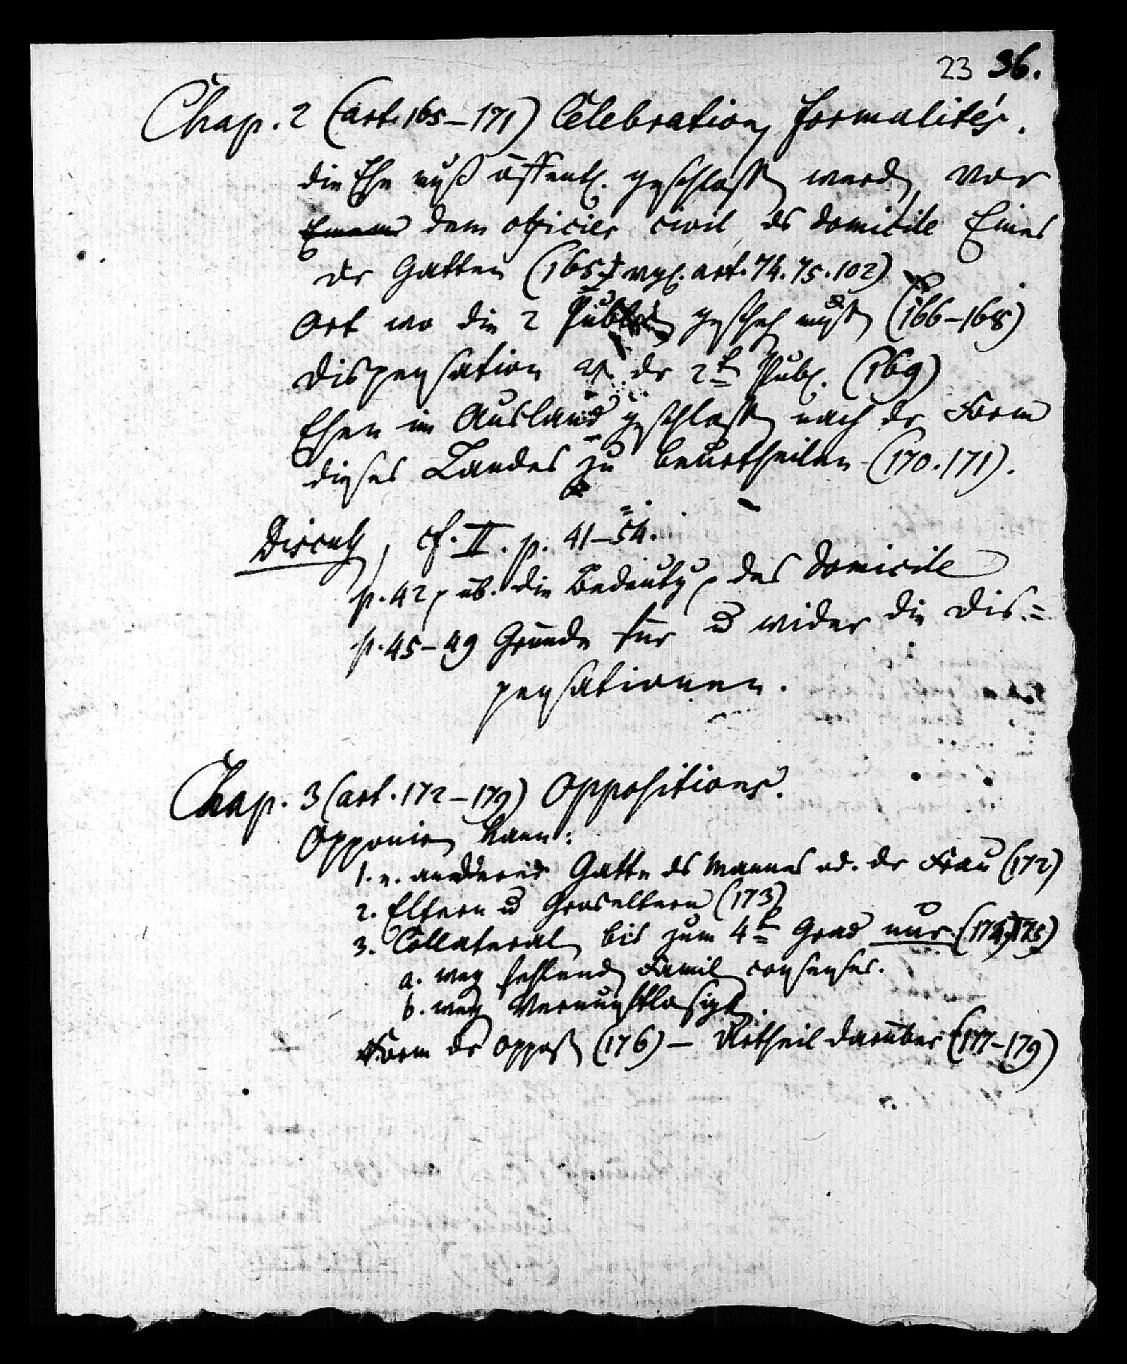 23 36.
Chap. 2 (art. 165–171) Celebration, formalités.
die Ehe muß öffentl. geschloss werd, vor
Einem dem officier civil, ds domicile Eines
der Gatten (165. vgl. art. 74. 75. 102)
Ort wo die 2 Public gescheh muß (166–168)
Dispensation v. der 2t Publ. (169)
Ehen im Ausland geschloss nach der Form
dieses Landes zu beurtheilen (170. 171).
Discuss, cf. II. p. 41–54.
p. 42, üb. die Bedeutg des Domicile
p. 45–49 Gründe für u wider die Dis=
pensationen.
Chap. 3 (art. 172–179) Oppositions.
Opponir kann:
1. e. anderer Gatte ds Mannes od. der Frau (172)
2. Eltern u Groseltern (173)
3. Collateral, bis zum 4t Grad nur (174. 175)
a. weg fehlend Famil consenses.
b. weg Vernunftlosigk.
Form der Opposit (176) – Urtheil darüber (177–179)